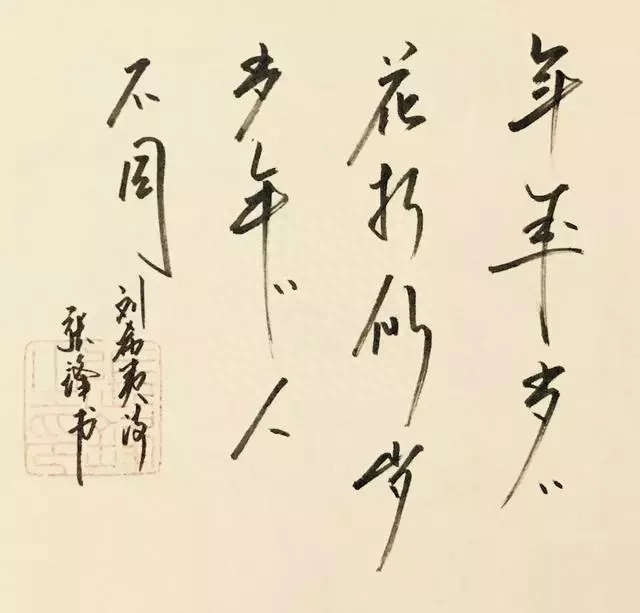 年年岁〻
花相似岁
岁年〻人
不同
刘希夷诗
锋书